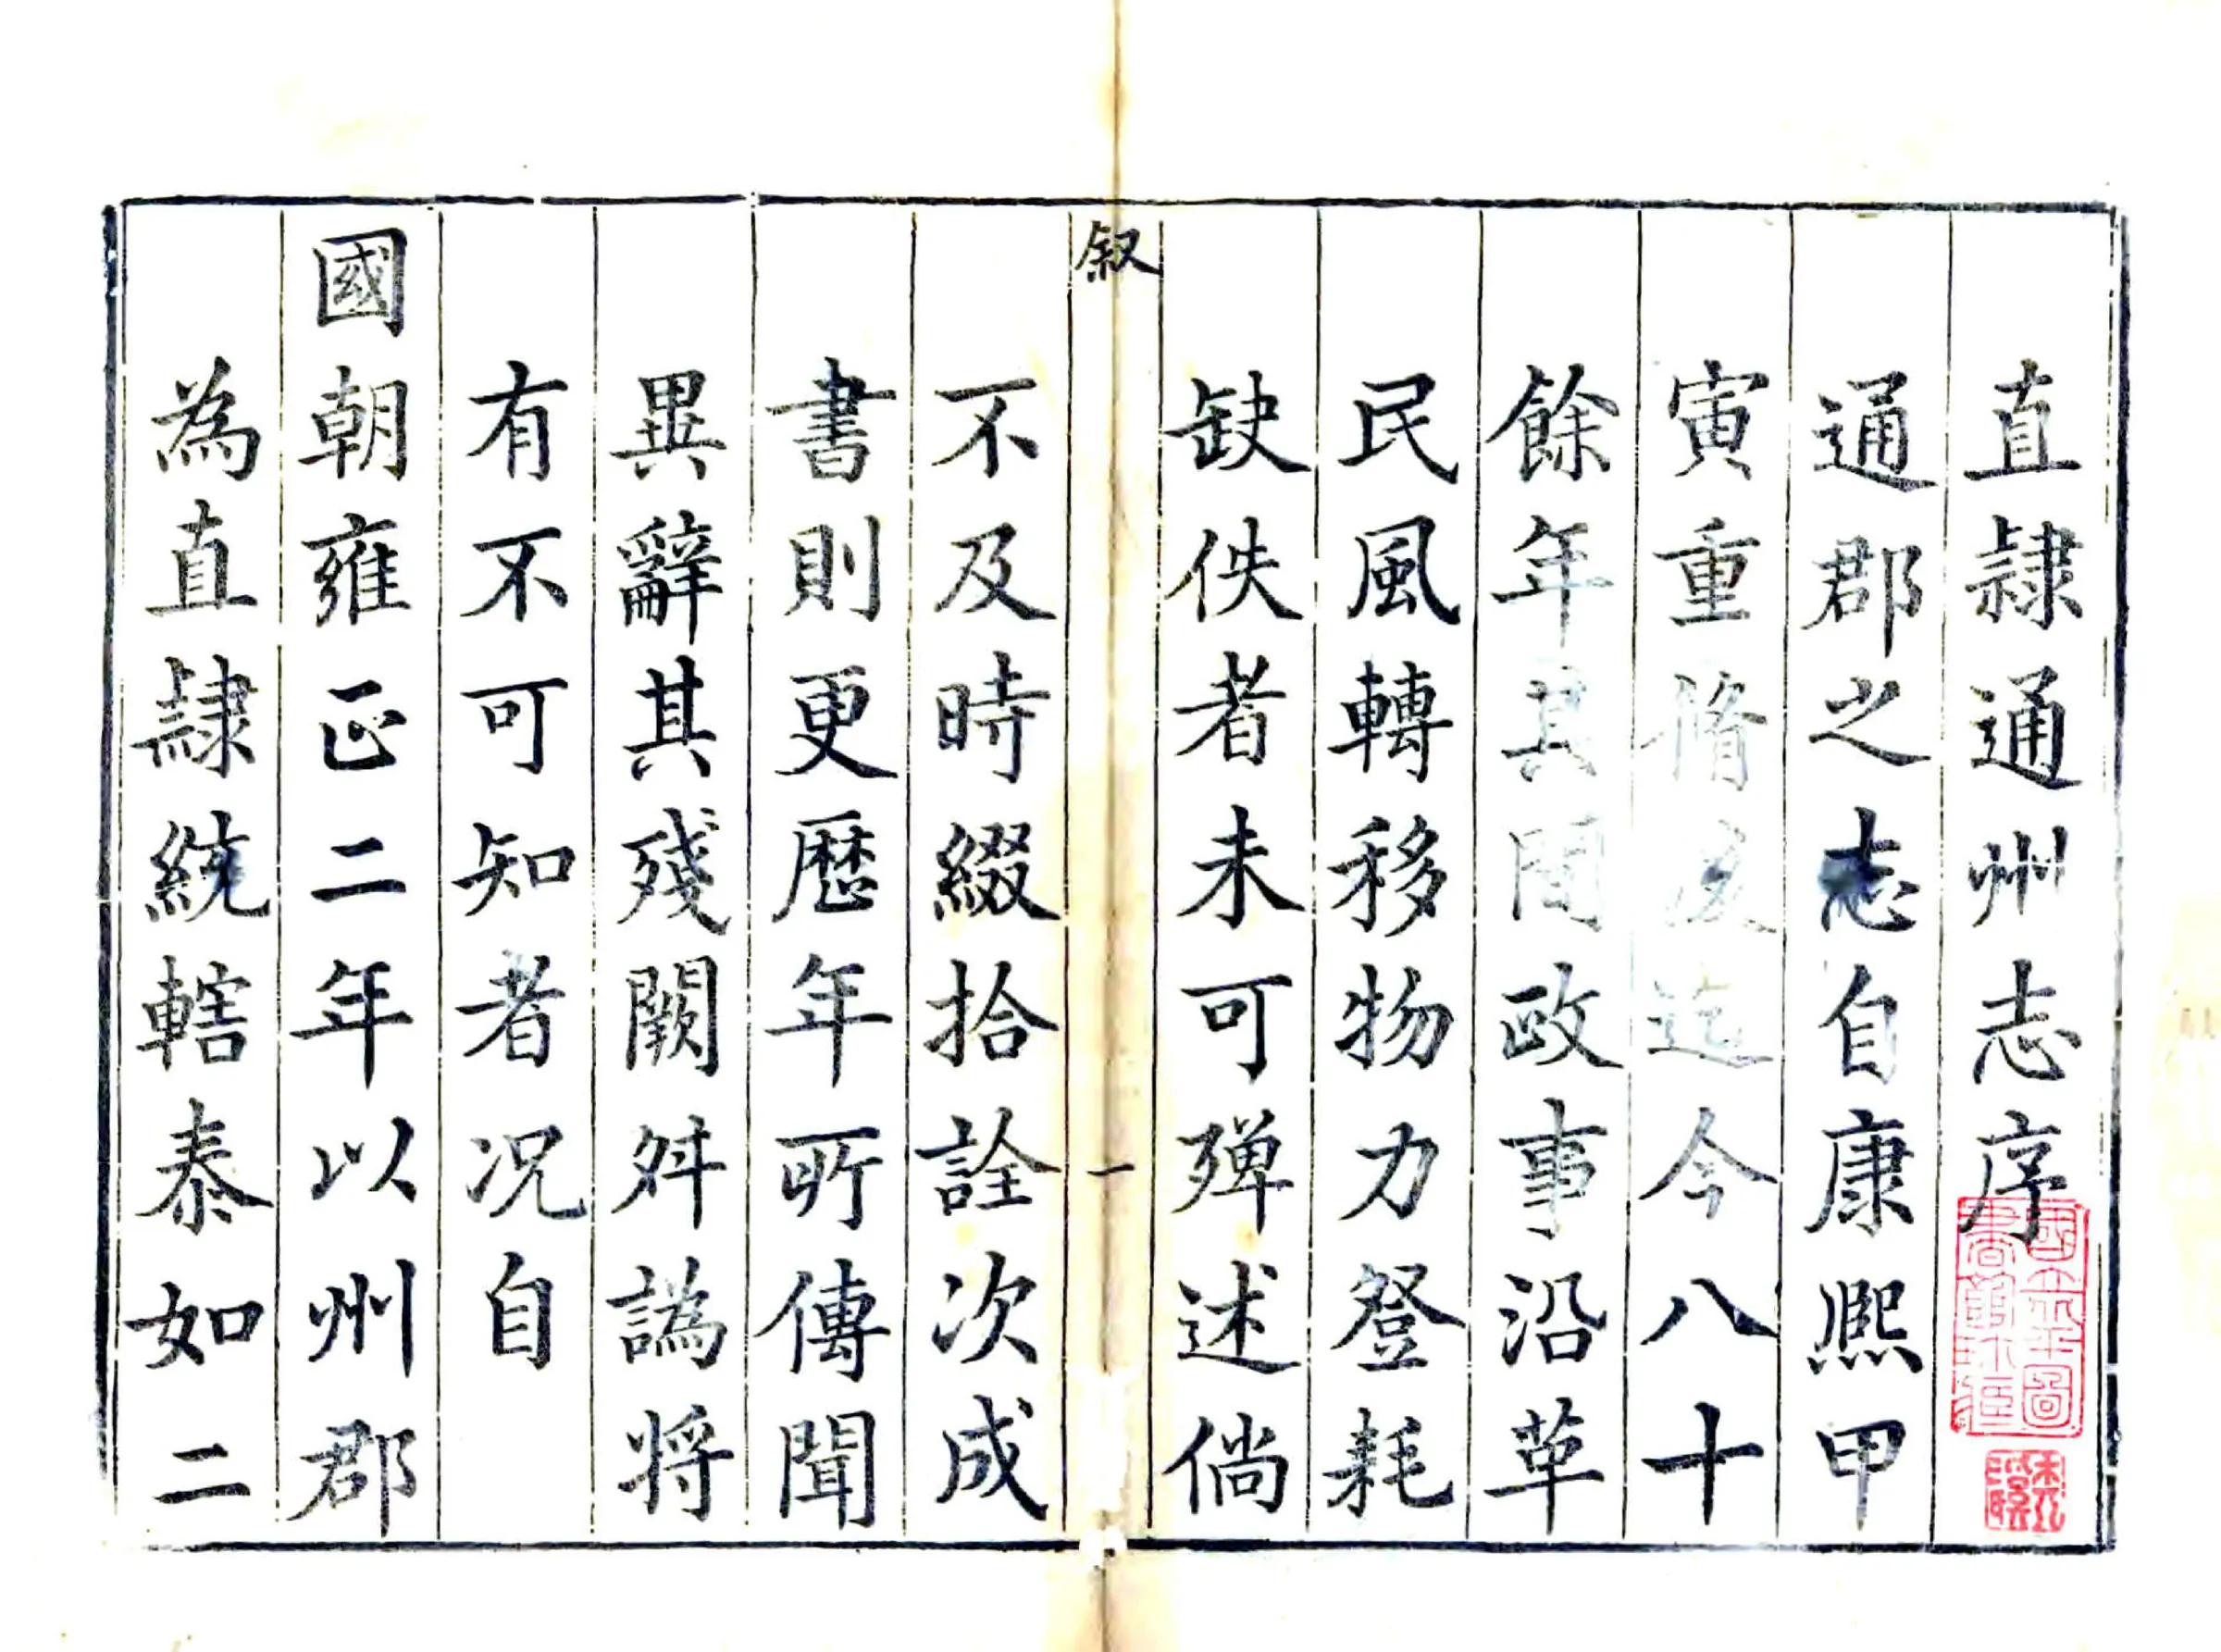 直隸通州志序
通郡之志自康熙甲
寅重脩後迄今八十
餘年其間政事沿革
民風轉移物力登耗
缺佚者未可殫述倘
敘
一
不及時綴拾詮次成
書則更歷年所傳聞
異辭其殘闕舛譌將
有不可知者况自
國朝雍正二年以州郡
為直隸統轄泰如二
國立北平圖書館珍藏